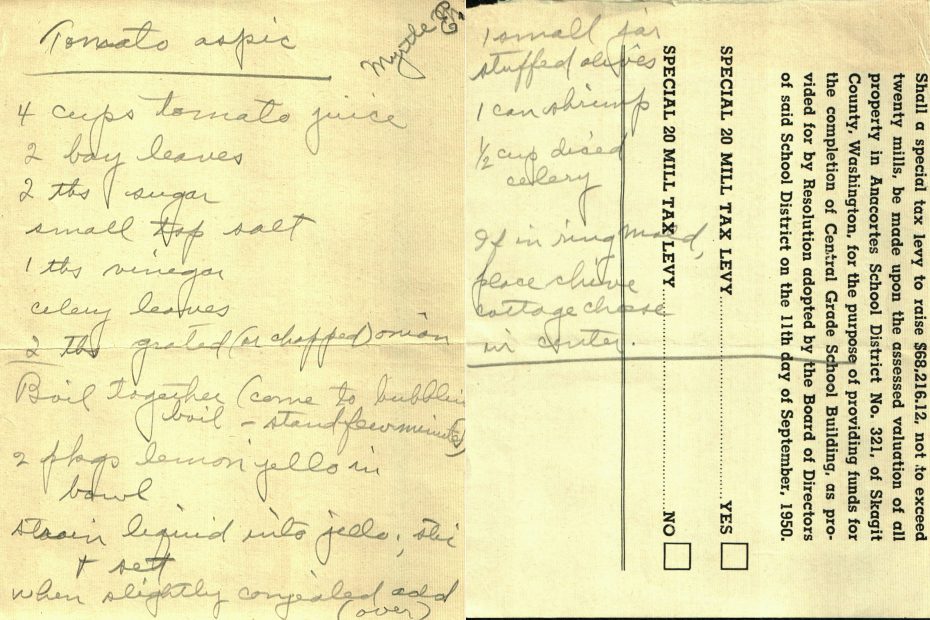 Tomato aspic
Myrtle
4 cups tomato juice
2 bay leaves
2 tbs sugar
small tsp salt
1 tbs vinegar
celery leaves
2 tbs grated (or chopped) onion
Boil together (come to bubblin
boil - stand few minutes)
2 pkgs lemon jello in
bowl
strain liquid into jello, stir
+ set
when slightly congealed add
(over)
1 small jar
stuffed olives
1 can shrimp
1/2 cup diced
celery
If in ring mold,
place chive
cottage cheese
in center.
Shall a special tax levy to raise $68,216.12, not to exceed
twenty mills, be made upon the assessed valuation of all
property in Anacortes School District No. 321, of Skagit
County, Washington, for the purpose of providing funds for
the completion of Central Grade School Building, as pro-
vided for by Resolution adopted by the Board of Directors
of said School District on the 11th day of September, 1950.
SPECIAL 20 MILL TAX LEVY YES
SPECIAL 20 MILL TAX LEVY NO